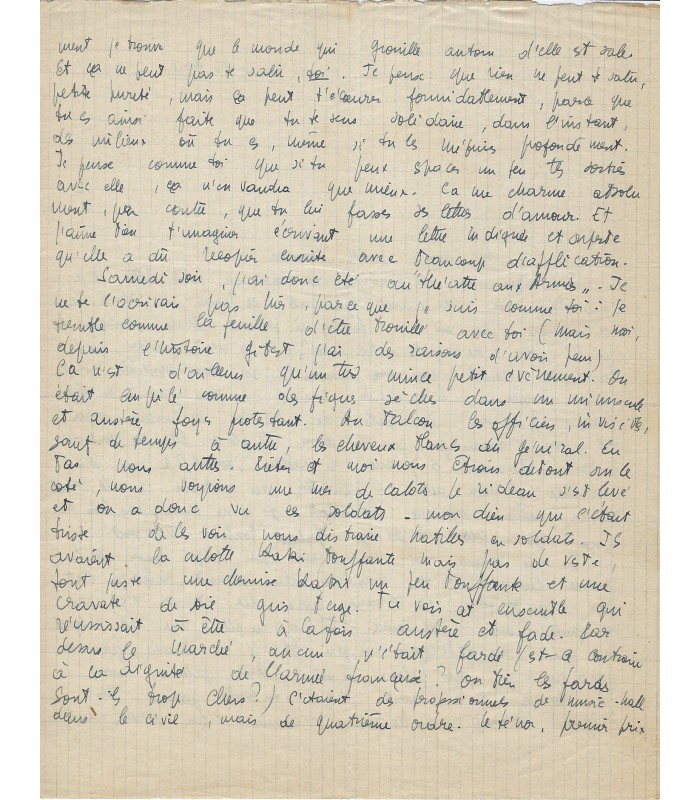 ment je trouve que le monde qui grouille autour d'elle est sale.
Et ça ne peut pas te salir, toi. Je pense que rien ne peut te salir,
petite pureté, mais ça peut t'écoeurer formidablement, parce que
tu es ainsi faite que tu te sens solidaire, dans l'instant,
des milieux où tu es, même si tu les méprises profondément.
Je pense comme toi que si tu peux espacer un peu tes sorties
avec elle, ça n'en vaudra que mieux. Ca me charme absolu
ment, par contre, que tu lui fasses ses lettres d'amour. Et
j'aime bien t'imaginer écrivant une lettre indignée et
qu'elle a dû recopier ensuite avec beaucoup d'application.
Samedi soir, j'ai donc été au "théâtre aux Armées". Je
ne te l'écrivais pas hier, parce que je suis comme toi : je
tremble comme la feuille d'être brouillé avec toi (mais moi,
depuis l'histoire Gibert, j'ai des raisons d'avoir peur)
Ca n'est d'ailleurs qu'un très mince petit évènement. On
était empilé comme des figues sèches dans un minuscule
et austère foyer protestant. Au balcon les officiers, invisibles,
sauf de temps à autre, les cheveux blancs du général. En
bas nous autres. Pieter et moi nous étions debout sur le
côté, nous voyions une mer de calots. Le rideau s'est levé
et on a donc vu ces soldats - mon dieu que c'était
triste de les voir nous distraire habillés en soldats. Ils
avaient la culotte kaki bouffante mais pas de veste,
tout juste une chemise kaki un peu bouffante et une
cravate de soie gris beige. Tu vois cet ensemble qui
réussissait à être à la fois austère et fade. Par
dessus le marché, aucun n'était fardé (est-ce contraire
à la dignité de l'armée française ? ou bien les fards
sont-ils trop chers ?) C'étaient des professionnels de music-hall
dans le civil, mais de quatrième ordre. Le ténor, premier prix